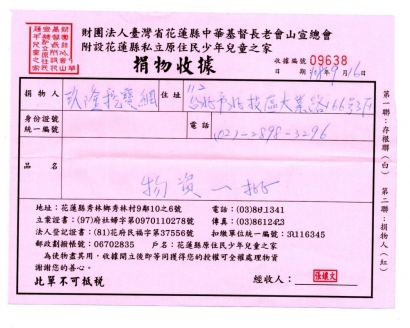 財團法人臺灣省花蓮縣中華基督長老會山宣總會
附設花蓮縣私立原住民少年兒童之家
捐物收據
收據編號 09638
日期 9月16
捐物人 玖隆挖寶網 住址 112 台北市北投區大業路166號3F
身份證號
統一編號
電話 (02)-2898-3296
品名
物資一批
地址:花蓮縣秀林鄉秀林村9鄰10之6號 電話:(03)8
立案證書:(97)府社婦字第0970110278號
法人登記證書:(81)府民福字第37556號 扣繳單位統一編號:
郵政劃撥帳號:06702835 戶名:花蓮縣原住民少年兒童之家
為使物盡其用,收據開立後即等同獲得您的授權可全權處理物資
謝謝您的善心。
此單不可抵稅 經收人:
第一聯:存根聯(白) 第二聯:捐物人(紅)